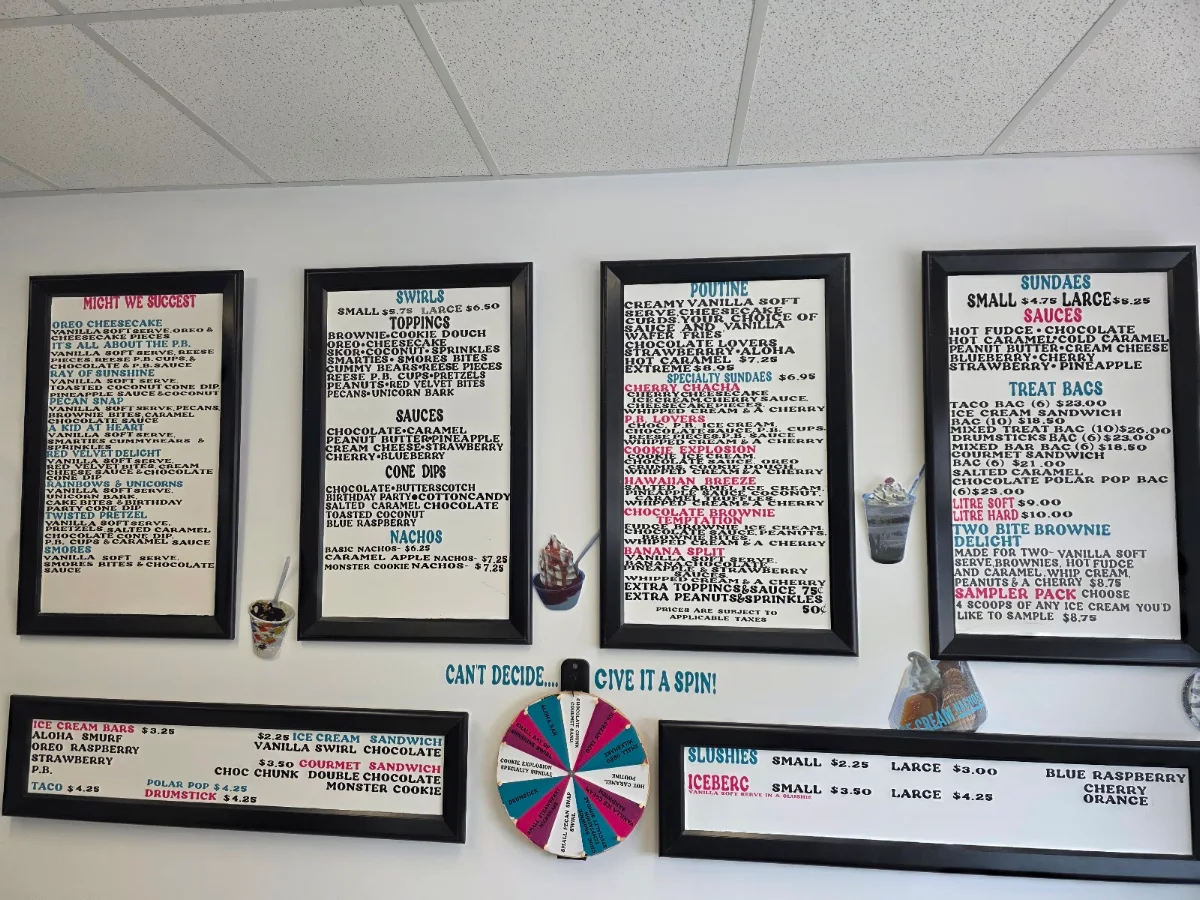 MIGHT WE SUGGEST
OREO CHEESECAKE
VANILLA SOFT SERVE, OREO &
CHEESECAKE PIECES
IT'S ALL ABOUT THE P.B.
VANILLA SOFT SERVE, REESE
PIECES, REESE P.B. CUPS, &
CHOCOLATE & P.B. SAUCE
RAY OF SUNSHINE
VANILLA SOFT SERVE,
TOASTED COCONUT CONE DIP,
PINEAPPLE SAUCE & COCONUT
PECAN SNAP
VANILLA SOFT SERVE, PECANS,
BROWNIE BITES, CARAMEL
CHOCOLATE SAUCE
A KID AT HEART
VANILLA SOFT SERVE,
SMARTIES GUMMY BEARS &
SPRINKLES
RED VELVET DELIGHT
VANILLA SOFT SERVE,
RED VELVET BITES, CREAM
CHEESE SAUCE & CHOCOLATE
CONE DIP
RAINBOWS & UNICORNS
VANILLA SOFT SERVE,
UNICORN BARK,
CAKE BITES & BIRTHDAY
PARTY CONE DIP
TWISTED PRETZEL
VANILLA SOFT SERVE,
PRETZELS, SALTED CARAMEL
CHOCOLATE CONE DIP,
P.B. CUPS & CARAMEL SAUCE
SMORES
VANILLA SOFT SERVE,
SMORES BITES & CHOCOLATE
SAUCE
SWIRLS
SMALL $5.75 LARGE $6.50
TOPPINGS
BROWNIE•COOKIE DOUGH
OREO•CHEESECAKE
SKOR•COCONUT•SPRINKLES
SMARTIES•SMORES BITES
GUMMY BEARS•REESE PIECES
REESE P.B. CUPS•PRETZELS
PEANUTS•RED VELVET BITES
PECANS•UNICORN BARK
SAUCES
CHOCOLATE•CARAMEL
PEANUT BUTTER•PINEAPPLE
CREAM CHEESE•STRAWBERRY
CHERRY•BLUEBERRY
CONE DIPS
CHOCOLATE•BUTTERSCOTCH
BIRTHDAY PARTY•COTTONCANDY
SALTED CARAMEL CHOCOLATE
TOASTED COCONUT
BLUE RASPBERRY
NACHOS
BASIC NACHOS- $6.25
CARAMEL APPLE NACHOS- $7.25
MONSTER COOKIE NACHOS- $7.25
POUTINE
CREAMY VANILLA SOFT
SERVE CHEESECAKE
CURDS, YOUR CHOICE OF
SAUCE AND VANILLA
WAFER FRIES
CHOCOLATE LOVERS
STRAWBERRY•ALOHA
HOT CARAMEL $7.25
EXTREME $8.95
SPECIALTY SUNDAES $6.95
CHERRY CHACHA
CHERRY CHEESECAKE
ICE CREAM, CHERRY SAUCE,
CHEESECAKE PIECES,
WHIPPED CREAM & A CHERRY
P.B. LOVERS
CHOC. P.B. ICE CREAM,
CHOCOLATE SAUCE, P.B. CUPS,
REESE PIECES, P.B. SAUCE,
WHIPPED CREAM & A CHERRY
COOKIE EXPLOSION
COOKIE ICE CREAM,
CHOCOLATE SAUCE, OREO
CRUMBS, COOKIE DOUGH
WHIPPED CREAM & A CHERRY
HAWAIIAN BREEZE
SALTED CAMEL ICE CREAM,
PINEAPPLE SAUCE, COCONUT,
CARAMEL TRUFFLES,
WHIPPED CREAM & A CHERRY
CHOCOLATE BROWNIE
TEMPTATION
FUDGE BROWNIE ICE CREAM,
CHOCOLATE SAUCE, PEANUTS,
BROWNIE BITES,
WHIPPED CREAM & A CHERRY
BANANA SPLIT
VANILLA SOFT SERVE,
BANANA, CHOCOLATE,
& STRAWBERRY
WHIPPED CREAM & A CHERRY
EXTRA TOPPINGS&SAUCE 75¢
EXTRA PEANUTS&SPRINKLES
50¢
PRICES ARE SUBJECT TO
APPLICABLE TAXES
SUNDAES
SMALL $4.75 LARGE $5.25
SAUCES
HOT FUDGE•CHOCOLATE
HOT CARAMEL/COLD CARAMEL
PEANUT BUTTER•CREAM CHEESE
BLUEBERRY•CHERRY
STRAWBERRY•PINEAPPLE
TREAT BAGS
TACO BAG (6) $23.00
ICE CREAM SANDWICH
BAG (10) $18.50
MIXED TREAT BAG (10)$26.00
DRUMSTICKS BAG (6) $23.00
MIXED BAR BAG (6) $18.50
GOURMET SANDWICH
BAG (6) $21.00
SALTED CARAMEL
CHOCOLATE POLAR POP BAG
(6)$23.00
LITRE SOFT $9.00
LITRE HARD $10.00
TWO BITE BROWNIE
DELIGHT
MADE FOR TWO- VANILLA SOFT
SERVE, BROWNIES, HOT FUDGE
AND CARAMEL, WHIP CREAM,
PEANUTS & A CHERRY $8.75
SAMPLER PACK CHOOSE
4 SCOOPS OF ANY ICE CREAM YOU'D
LIKE TO SAMPLE $8.75
CAN'T DECIDE.... GIVE IT A SPIN!
ICE CREAM BARS $3.25
ALOHA SMURF
OREO RASPBERRY
STRAWBERRY
P.B.
TACO $4.25
POLAR POP $4.25
DRUMSTICK $4.25
$2.25 ICE CREAM SANDWICH
VANILLA SWIRL CHOCOLATE
$3.50 GOURMET SANDWICH
CHOC CHUNK DOUBLE CHOCOLATE
MONSTER COOKIE
ALOHA BAR
COOKIE EXPLOSION
SPECIALTY SUNDAE
DRUMSTICK
SMALL PECAN SNAP
SWIRL
HOT CARAMEL
POUTINE
SLUSHIES SMALL $2.25 LARGE $3.00
ICEBERG SMALL $3.50 LARGE $4.25
VANILLA SOFT SERVE IN A SLUSHIE
BLUE RASPBERRY
CHERRY
ORANGE